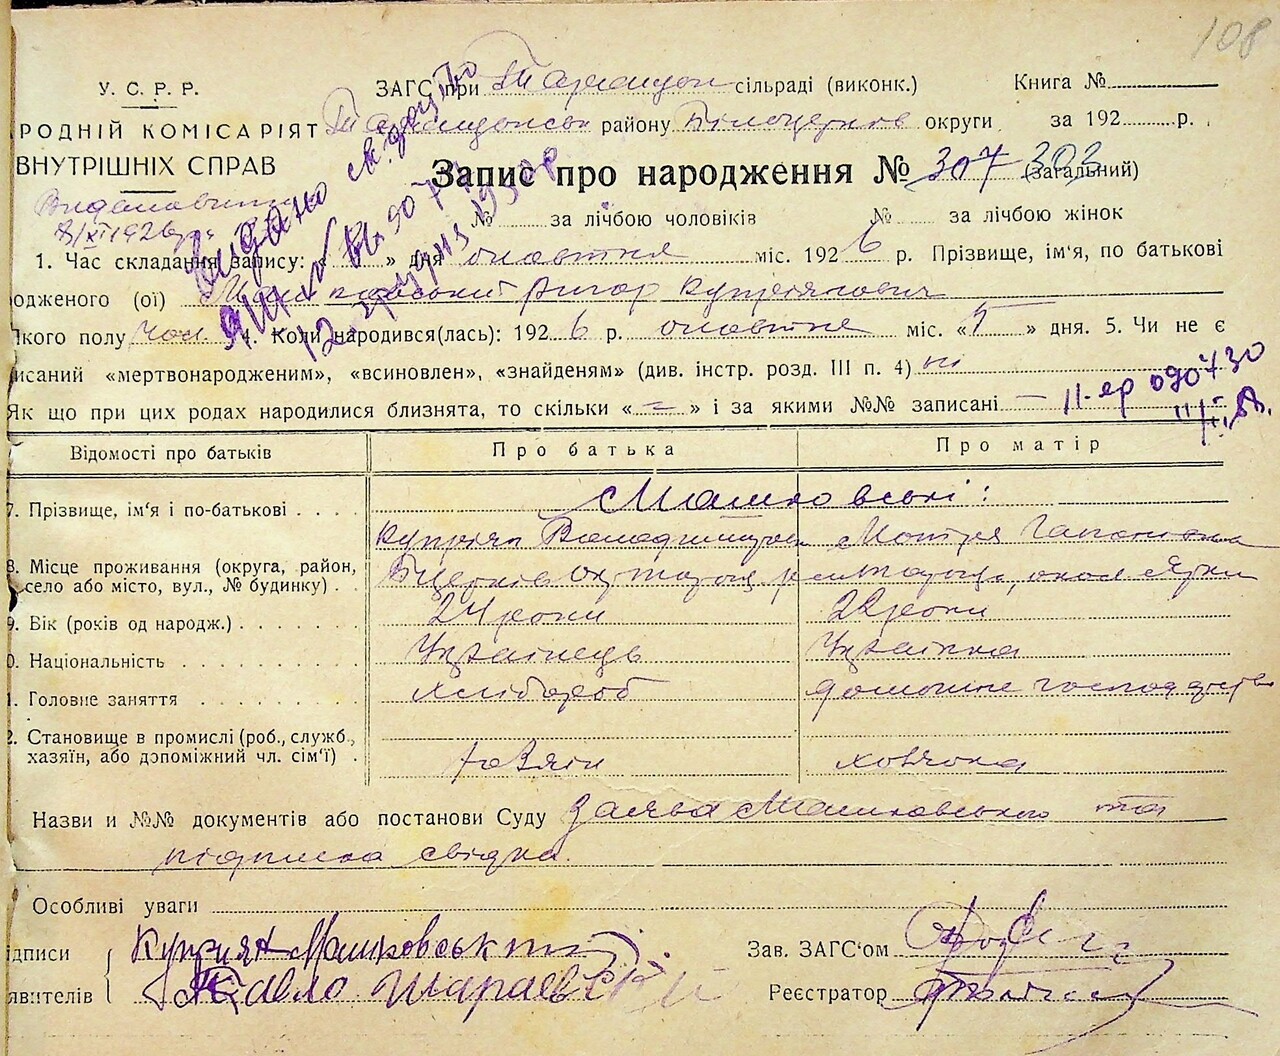 108
У. С. Р. Р.
ЗАГС при Таращан сільраді (виконк.) Книга №
РОДНІЙ КОМІСАРІЯТ Таращанськ району Білоцерків округи за 192 р.
ВНУТРІШНІХ СПРАВ
Запис про народження № 307 303 (загальний)
8/XI 1926 р.
№ за лічбою чоловіків № за лічбою жінок
Видано свідоцтво
12 1930 р
1. Час складання запису: « » дня жовтня міс. 1926 р. Прізвище, ім'я, по батькові
одженого (ої) Машковський Григор Купріянович
якого полу чол. 4. Коли народився(лась): 1926 р. жовтня міс. «5» дня. 5. Чи не є
исаний «мертвонародженим», «всиновлен», «знайденям» (див. інстр. розд. III п. 4) ні
Як що при цих родах народилися близнята, то скільки « – » і за якими №№ записані –
II-яр 090730
Відомості про батьків Про батька Про матір
7. Прізвище, ім'я і по-батькові Машковські:
Купріян Володимиров Мотря Гапонівна
8. Місце проживання (округа, район,
село або місто, вул., № будинку)
9. Вік (років од народж.) 24 роки 22 роки
0. Національність Українець Українка
1. Головне заняття хлібороб домашнє господарство
2. Становище в промислі (роб., служб.,
хазяїн, або допоміжний чл. сім'ї) хазяїн
Назви и №№ документів або постанови Суду Заява Машковського та
підписка свідка.
Особливі уваги
ідписи Купріян Машковський
Зав. ЗАГС'ом
явителів Павло Шараєвський
Реєстратор